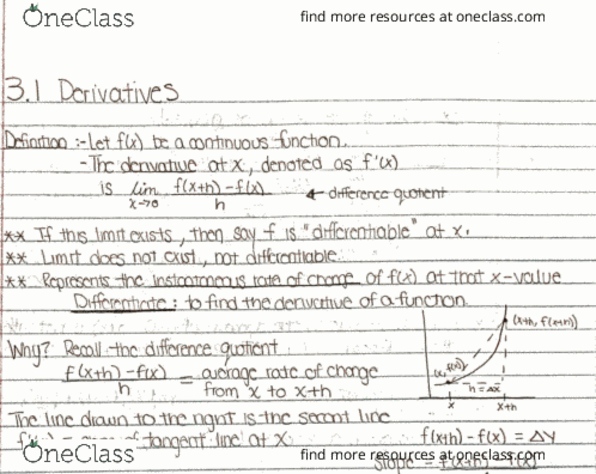 OneClass
find more resources at oneclass.com
3.1 Derivatives
Definition :- Let f(x) be a continuous function.
- The derivative at x, denoted as f'(x)
is lim x→0 f(x+h)-f(x) / h ← difference quotient
** If this limit exists, then say f is "differentiable" at x.
** Limit does not exist, not differentiable.
** Represents the instantaneous rate of change of f(x) at that x-value
Differentiate : to find the derivative of a function.
Why? Recall the difference quotient
f(x+h)-f(x) / h = average rate of change
from x to x+h
(x+h, f(x+h))
(x, f(x))
h = Δx
x x+h
The line drawn to the right is the secant line
f(x+h)-f(x) = Δy
tangent line at x
OneClass
find more resources at oneclass.com
slope = f(x+h)-f(x)